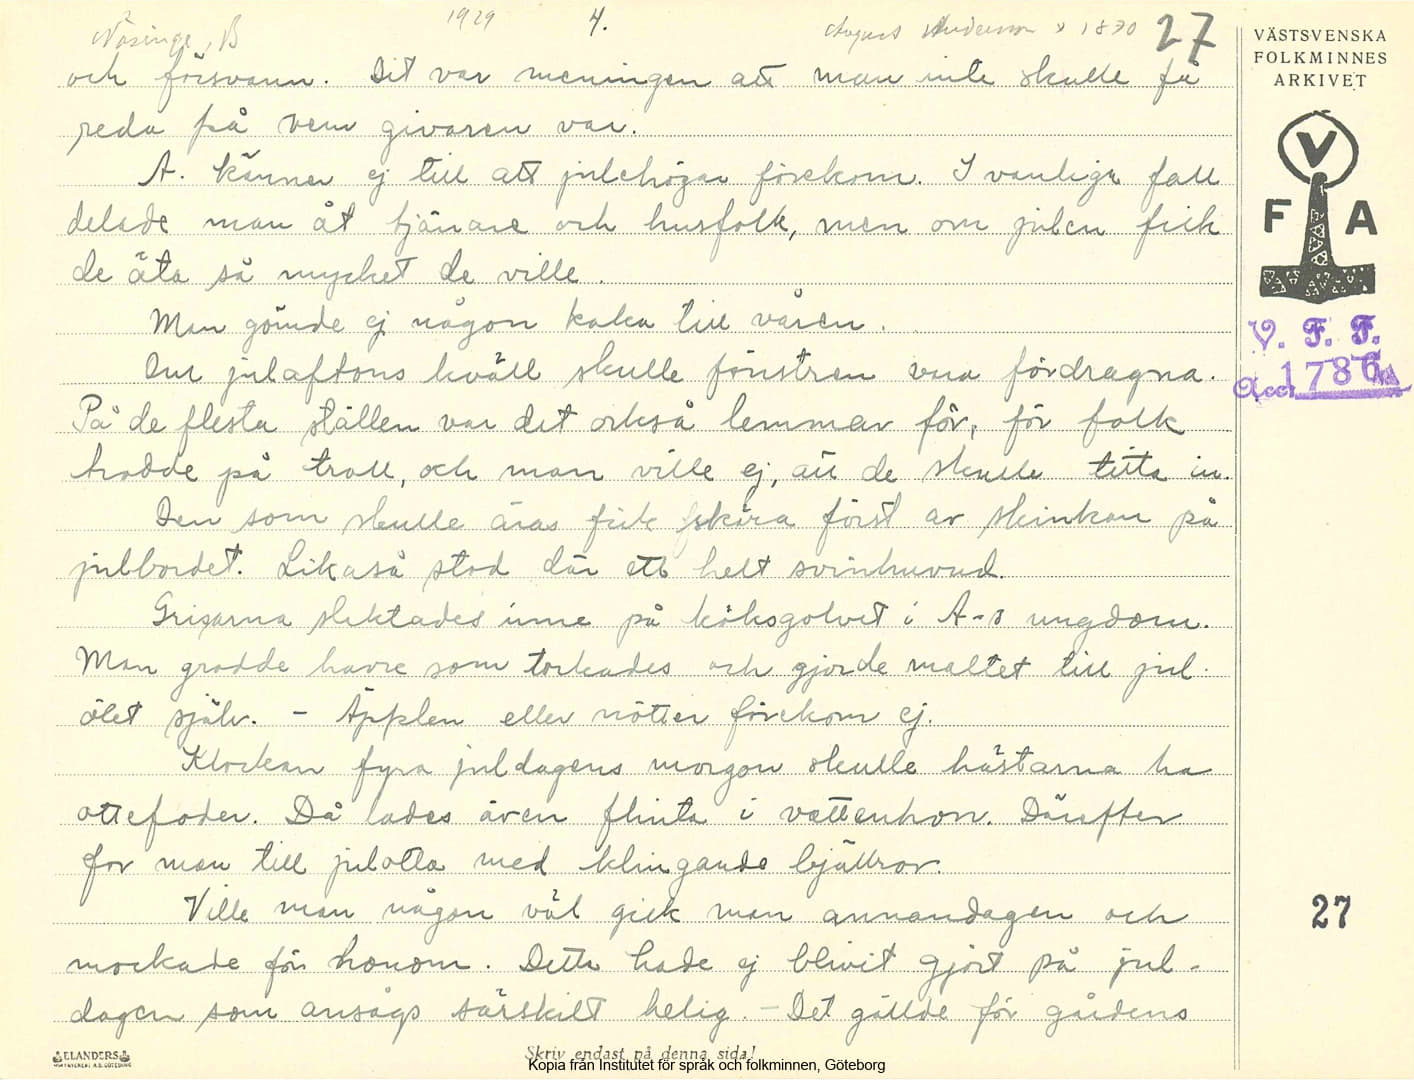 Näsinge, B 1929 4. August Andersson f 1870 27
och försvann. Dit var meningen att man inte skulle få
reda på vem givaren var.
A. känner ej till att julehögar förekom. I vanliga fall
delade man åt tjänare och husfolk, men om julen fick
de äta så mycket de ville.
Man gömde ej någon kaka till våren.
Om julaftons kväll skulle fönstren vara fördragna.
På de flesta ställen var det också lemmar för, för folk
trodde på troll, och man ville ej, att de skulle titta in.
Den som skulle äras fick skära först av skinkan på
julbordet. Likaså stod där ett helt svinhuvud.
Grisarna slaktades inne på köksgolvet i A-s ungdom.
Man grodde havre som torkades och gjorde maltet till jul-
ölet själv. - Äpplen eller nötter förekom ej.
Klockan fyra juldagens morgon skulle hästarna ha
ottefoder. Då lades även flinta i vattenhon. Därefter
for man till julotta med klingande bjällror.
Ville man någon väl gick man annandagen och
mockade för honom. Detta hade ej blivit gjort på jul-
dagen som ansågs särskilt helig. - Det gällde för gårdens
VÄSTSVENSKA
FOLKMINNES
ARKIVET
V
F A
V. F. F.
Acc. 1786
27
ELANDERS
Skriv endast på denna sida!
Kopia från Institutet för språk och folkminnen, Göteborg